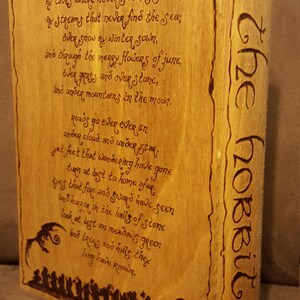 by caves where never sun has shone
by streams that never find the sea,
over snow by winter sown,
and through the merry flowers of june,
over grass and over stone,
and under mountains in the moon.
roads go ever ever on
under cloud and under star,
yet feet that wandering have gone
turn at last to home afar.
eyes that fire and sword have seen
and horror in the halls of stone
look at last on meadows green
and trees and hills they
long have known.
the hobbit